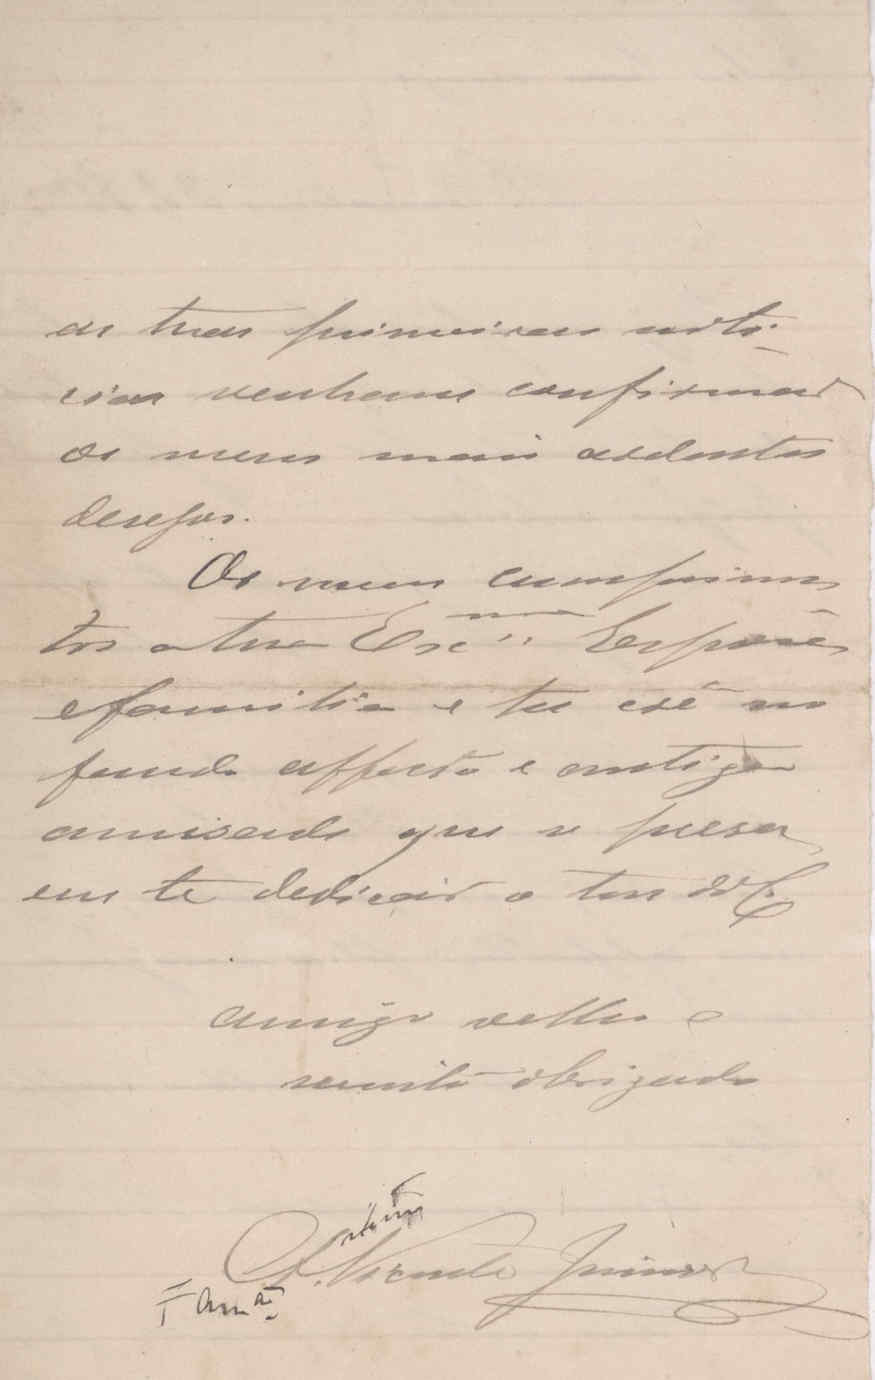 as tuas primeiras noti-
cias venham confirmar
os meus mais ardentes
desejos.
Os meus cumprimen
tos a tua Exma Esposa
e familia e tu crê no
fundo affecto e antiga
amisade que se presa
em te dedicar o teu
amigo velho e
muito obrigado
Vicente Junior